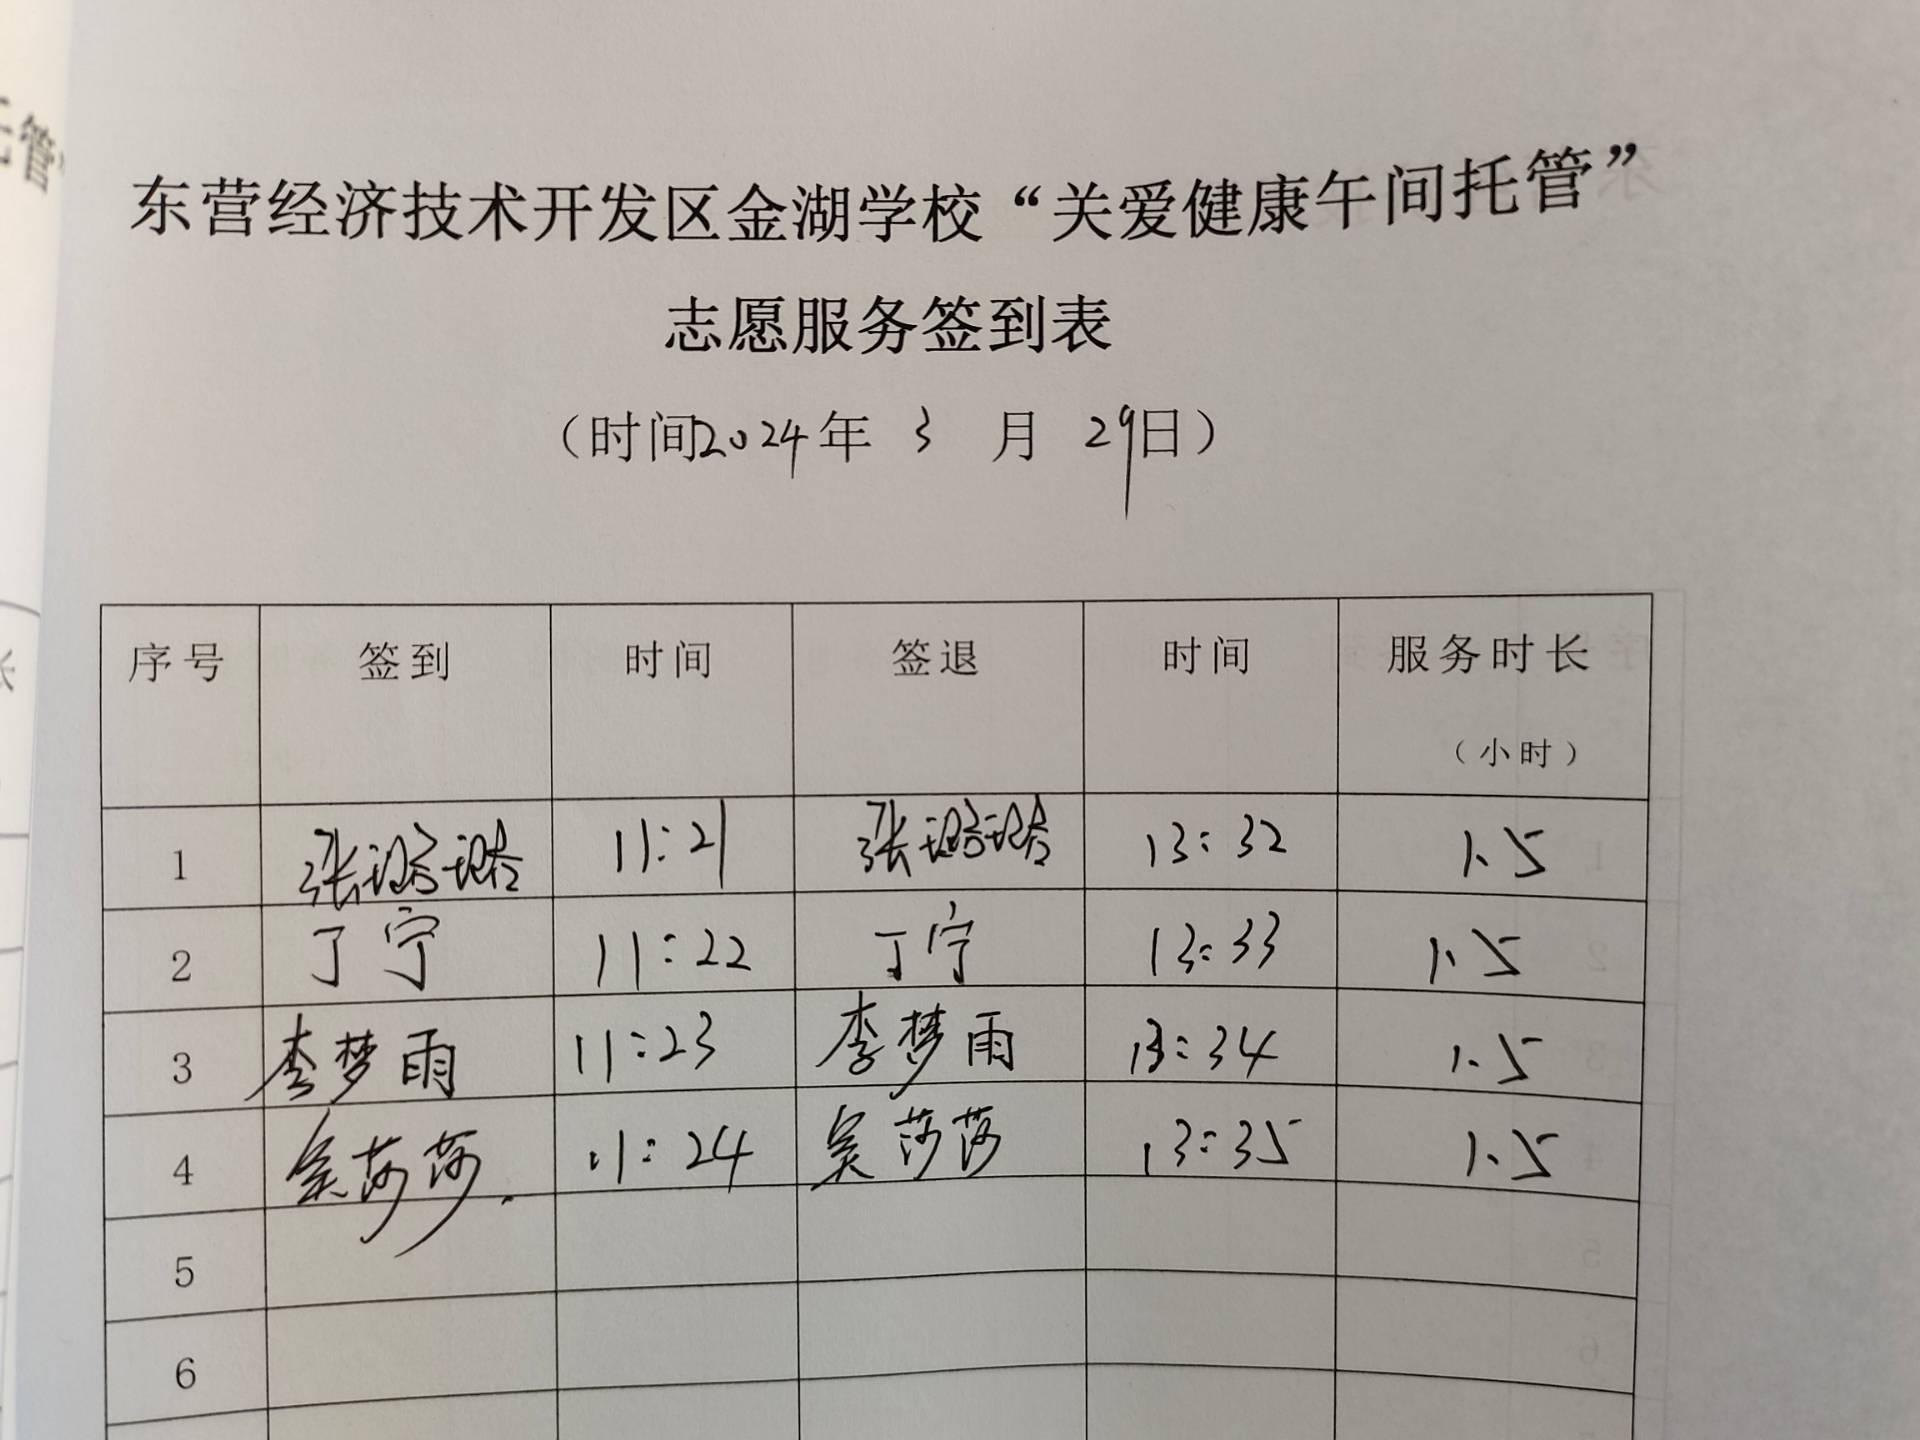 托管”
东营经济技术开发区金湖学校“关爱健康午间托管”
志愿服务签到表
（时间2024年 3 月 29日）
序号 签到 时间 签退 时间 服务时长
（小时）
1 张璐璐 11:21 张璐璐 13:32 1.5
2 丁宁 11:22 丁宁 13:33 1.5
3 李梦雨 11:23 李梦雨 13:34 1.5
4 吴莎莎 11:24 吴莎莎 13:35 1.5
5
6